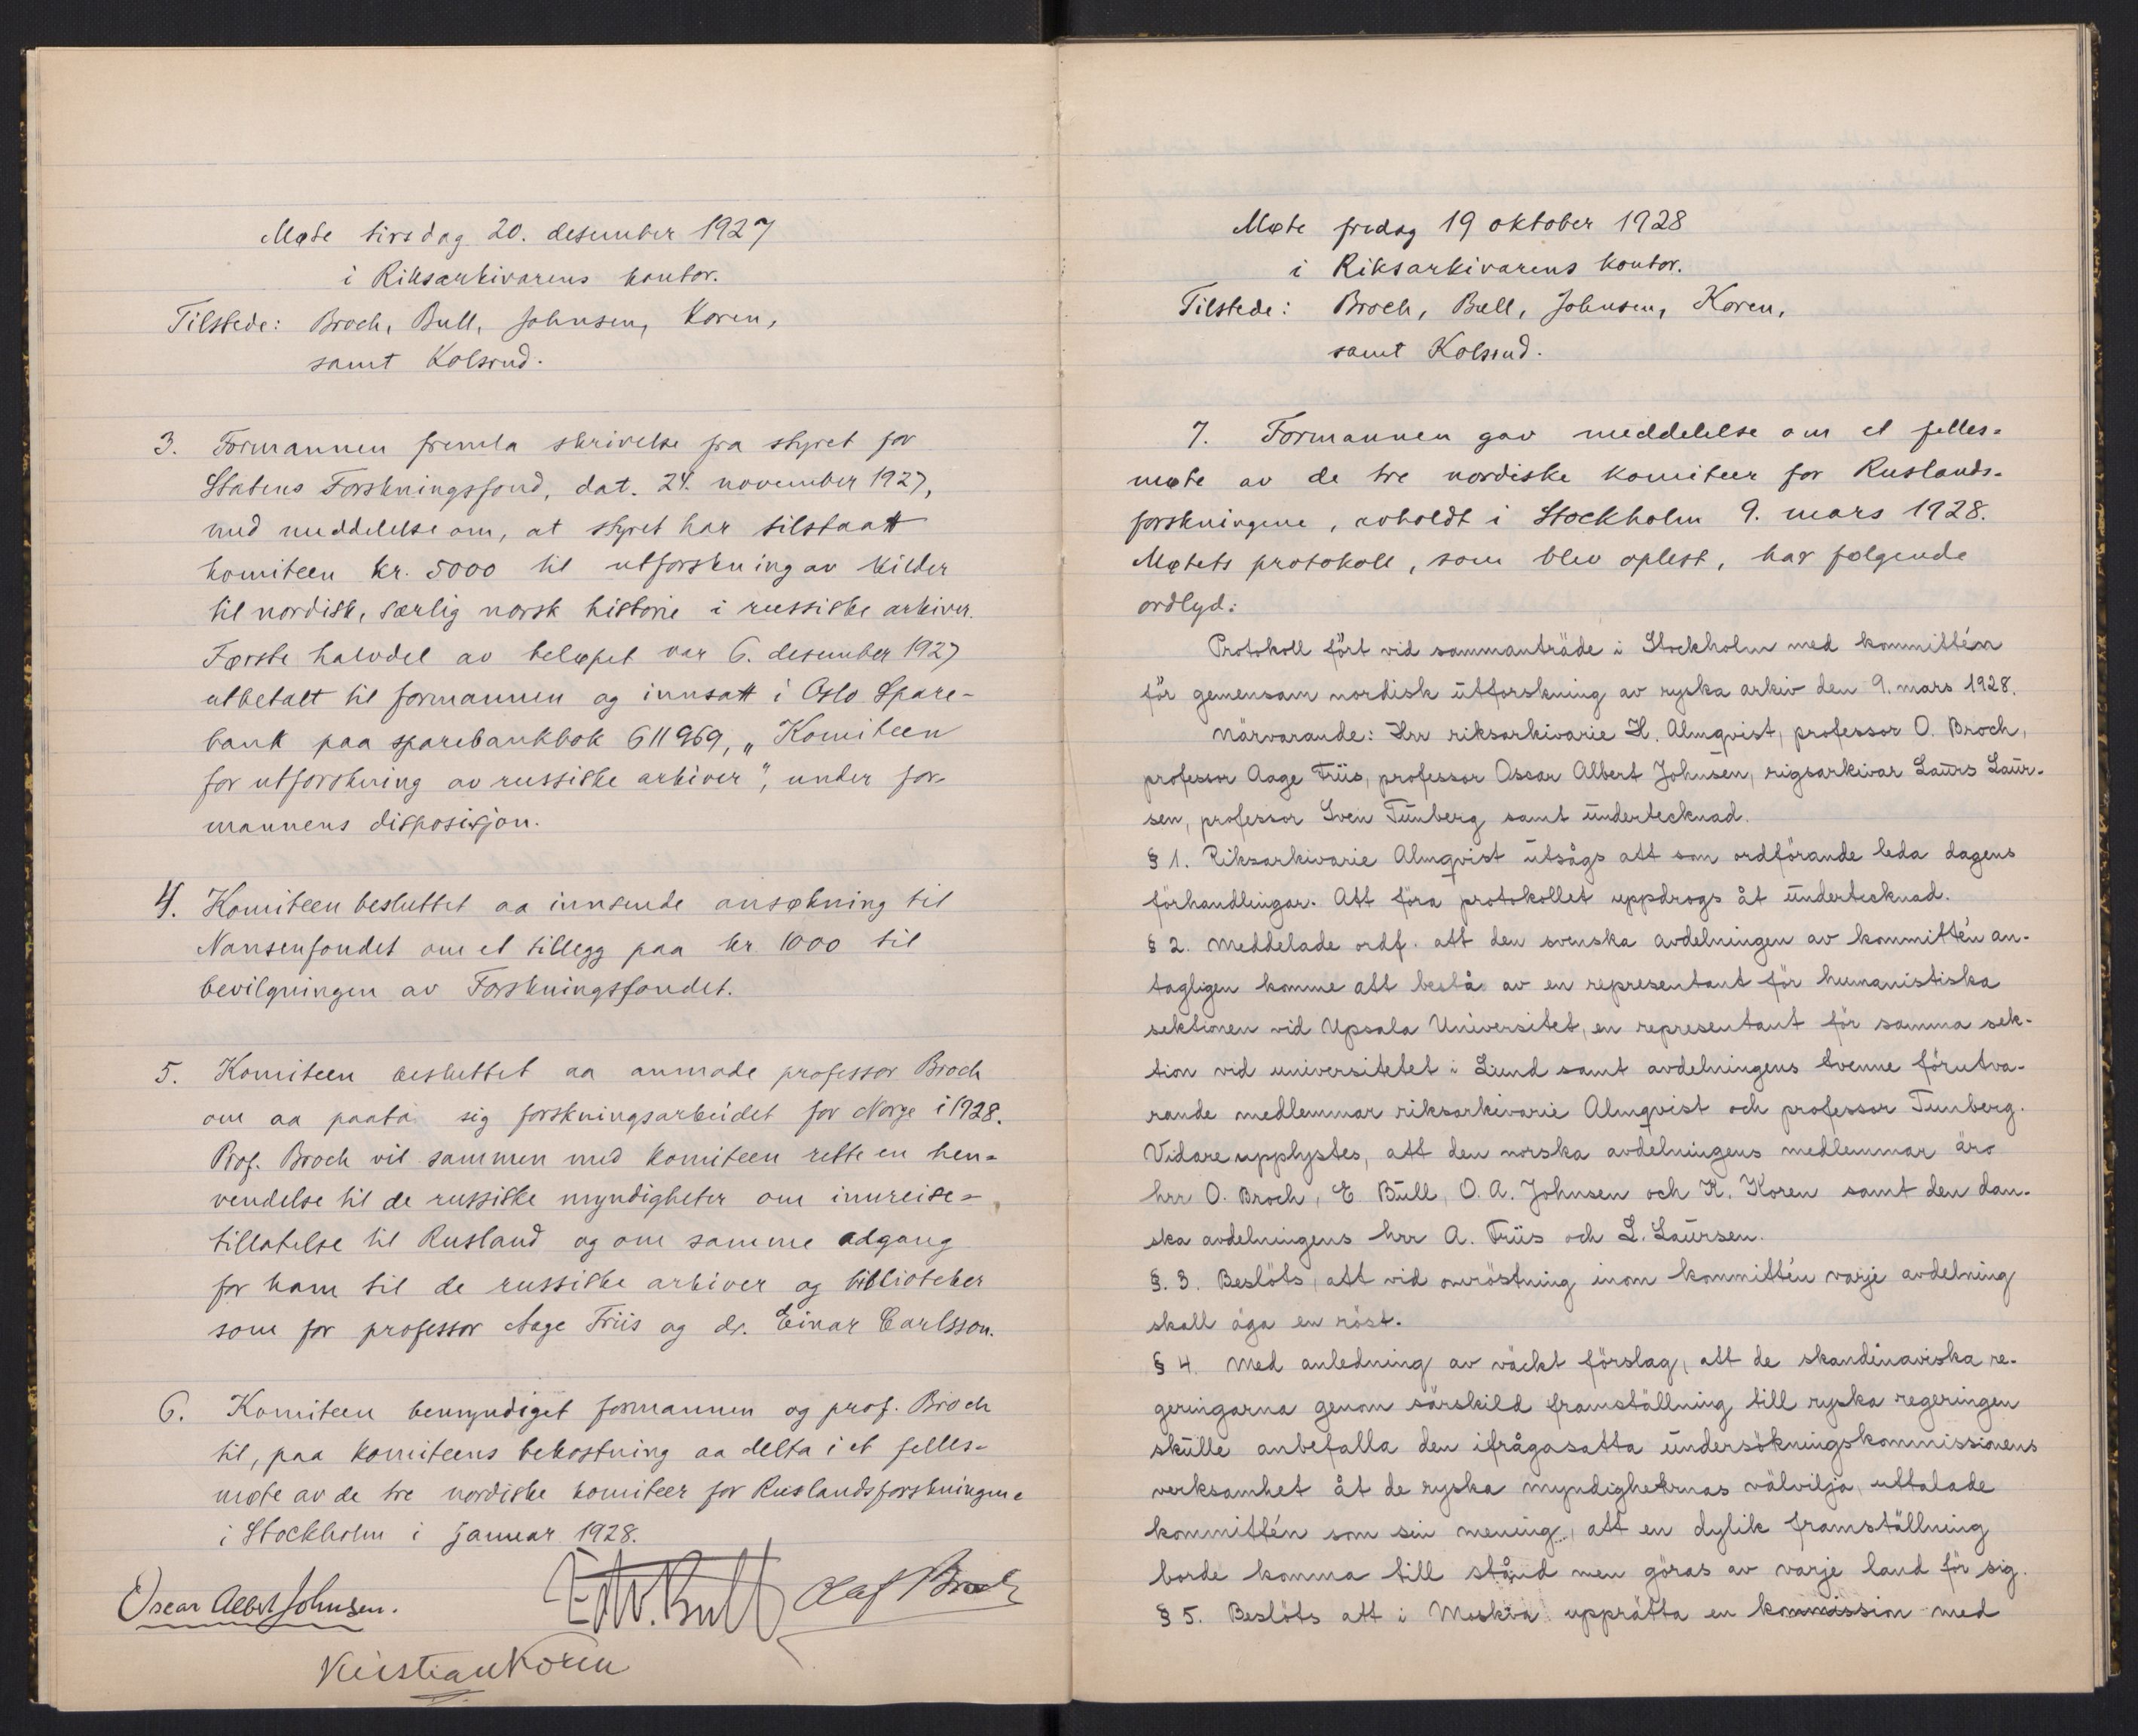 Møte tirsdag 20. desember 1927
i Riksarkivarens kontor.
Tilstede: Broch, Bull, Johnsen, Koren,
samt Kolsrud.
3. Formannen fremla skrivelse fra styret for
Statens Forskningsfond, dat. 24. november 1927,
med meddelelse om, at styret har tilstaatt
komiteen kr. 5000 til utforskning av kilder
til nordisk, særlig norsk historie i russiske arkiver.
Første halvdel av beløpet var 6. desember 1927
utbetalt til formannen og innsatt i Oslo Spare-
bank paa sparebankbok 611969, „Komiteen
for utforskning av russiske arkiver", under for-
mannens disposisjon.
4. Komiteen besluttet aa innsende ansøkning til
Nansenfondet om et tillegg paa kr. 1000 til
bevilgningen av Forskningsfondet.
5. Komiteen besluttet aa anmode professor Broch
om aa paata sig forskningsarbeidet for Norge i 1928.
Prof. Broch vil sammen med komiteen rette en hen-
vendelse til de russiske myndigheter om innreise-
tillatelse til Rusland og om samme adgang
for ham til de russiske arkiver og biblioteker
som for professor Aage Friis og dr. Einar Carlsson.
6. Komiteen bemyndiget formannen og prof. Broch
til, paa komiteens bekostning aa delta i et felles-
møte av de tre nordiske komiteer for Ruslandsforskningene
i Stockholm i januar 1928.
Oscar Albert Johnsen. Edv. Bull Olaf Broch
Kristian Koren
Møte fredag 19 oktober 1928
i Riksarkivarens kontor.
Tilstede: Broch, Bull, Johnsen, Koren,
samt Kolsrud.
7. Formannen gav meddelelse om et felles-
møte av de tre nordiske komiteer for Ruslands-
forskningene, avholdt i Stockholm 9. mars 1928.
Møtets protokoll, som blev oplest, har følgende
ordlyd:
Protokoll fört vid sammanträde i Stockholm med kommittén
för gemensam nordisk utforskning av ryska arkiv den 9. mars 1928.
Närvarande: Hrr riksarkivarie H. Almqvist, professor O. Broch,
professor Aage Friis, professor Oscar Albert Johnsen, rigsarkivar Laurs Laur-
sen, professor Sven Tunberg samt undertecknad.
§ 1. Riksarkivarie Almqvist utsågs att som ordförande leda dagens
förhandlingar. Att föra protokollet uppdrogs åt undertecknad.
§ 2. Meddelade ordf. att den svenska avdelningen av kommittén an-
tagligen komme att bestå av en representant för humanistiska
sektionen vid Upsala Universitet, en representant för samma sek-
tion vid universitetet i Lund samt avdelningens tvenne förutva-
rande medlemmar riksarkivarie Almqvist och professor Tunberg.
Vidare upplystes, att den norska avdelningens medlemmar äro
hrr O. Broch, E. Bull, O. A. Johnsen och K. Koren samt den dan-
ska avdelningens hrr A. Friis och L. Laursen.
§. 3. Beslöts, att vid omröstning inom kommittén varje avdelning
skall äga en röst.
§ 4. Med anledning av väckt förslag, att de skandinaviska re-
geringarna genom särskild framställning till ryska regeringen
skulle anbefalla den ifrågasatta undersökningskommissionens
verksamhet åt de ryska myndigheternas välvilja, uttalade
kommittén som sin mening, att en dylik framställning
borde komma till stånd men göras av varje land för sig.
§ 5. Beslöts att i Moskva upprätta en kommission med